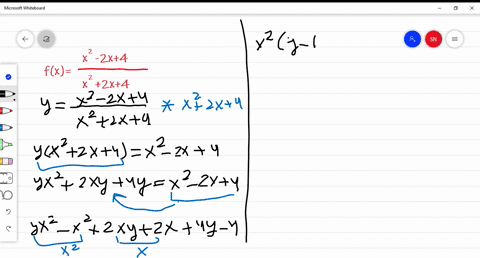 Microsoft Whiteboard
SN
f(x) = x²-2x+4 / x²+2x+4
y = x²-2x+4 / x²+2x+4 * x²+2x+4
y(x²+2x+4) = x²-2x+4
yx²+2xy+4y = x²-2x+4
yx²-x²+2xy+2x+4y-4
x² x
x²(y-1